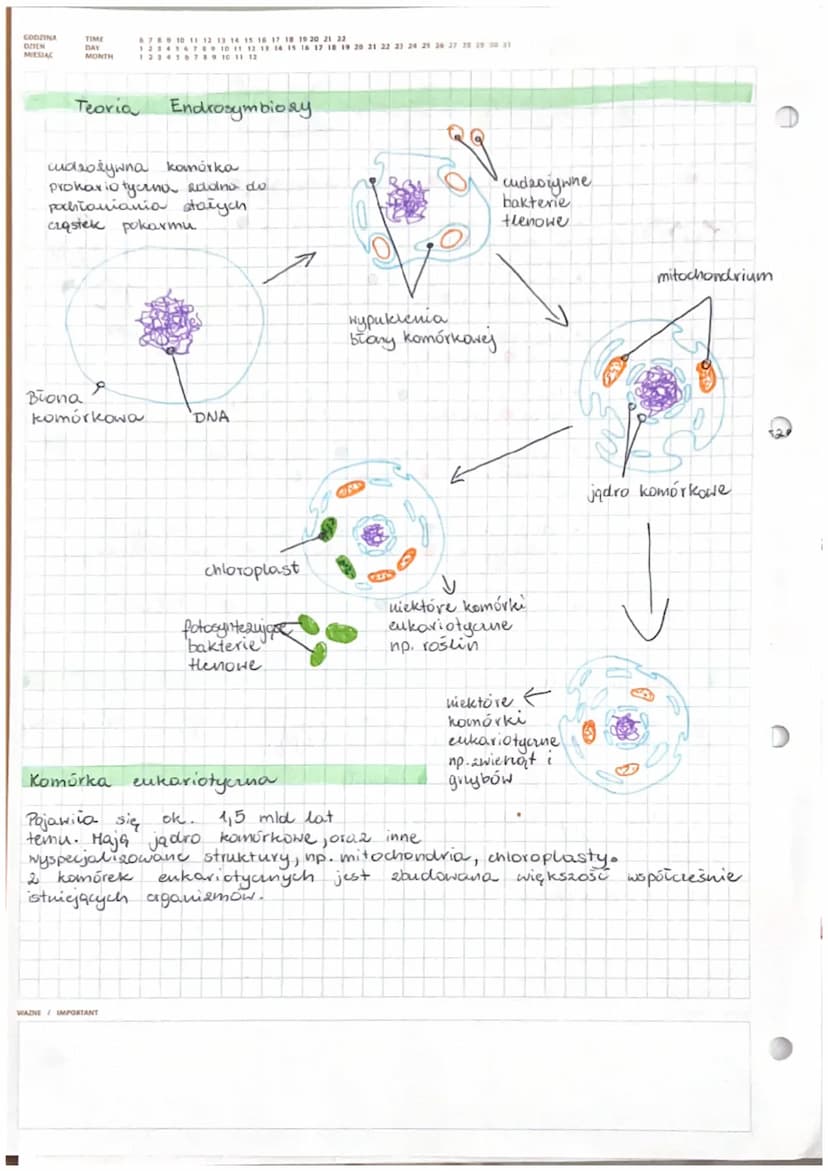 GODZINA TIME 6 7 8 9 10 11 12 13 14 15 16 17 18 19 20 21 22
DZIEŃ DAY 1 2 3 4 5 6 7 8 9 10 11 12 13 14 15 16 17 18 19 20 21 22 23 24 25 26 27 28 29 30 31
MIESIĄC MONTH 1 2 3 4 5 6 7 8 9 10 11 12
Teoria Endrosymbiozy
cudzożywna komórka
prokariotyczna zdolna do
pochłaniania stałych
cząstek pokarmu
cudzożywne
bakterie
tlenowe
wypuklenia
błony komórkowej
mitochondrium
Błona
komórkowa
DNA
jądro komórkowe
chloroplast
niektóre komórki
eukariotyczne
np. roślin
fotosyntezujące
bakterie
tlenowe
niektóre
komórki
eukariotyczne
np. zwierząt i
grzybów
Komórka eukariotyczna
Pojawiła się ok. 1,5 mld lat
temu. Mają jądro komórkowe, oraz inne
wyspecjalizowane struktury, np. mitochondria, chloroplasty.
Z komórek eukariotycznych jest zbudowana większość współcześnie
istniejących organizmów.
WAŻNE / IMPORTANT